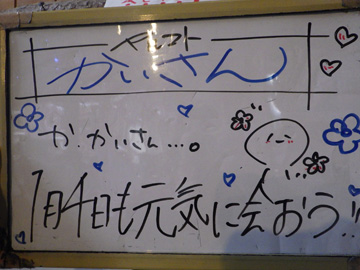 かいさん
か.かいさん...。
1月4日も元気に会おう!!